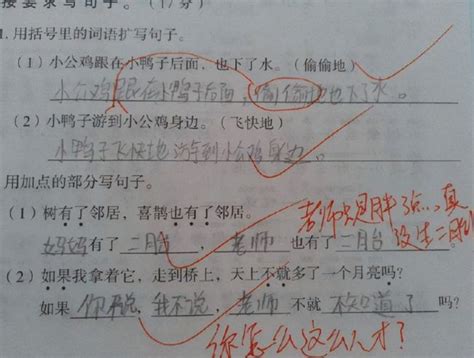 按要求写句子。(17分)
1. 用括号里的词语扩写句子。
(1) 小公鸡跟在小鸭子后面，也下了水。（偷偷地）
小公鸡跟在小鸭子后面，偷偷地也下了水。
(2) 小鸭子游到小公鸡身边。（飞快地）
小鸭子飞快地游到小公鸡身边。
用加点的部分写句子。
(1) 树有了邻居，喜鹊也有了邻居。
妈妈有了 二月台 ， 老师 也有了 二月台
老师只是胖了点…真没生二胎
(2) 如果我拿着它，走到桥上，天上不就多了一个月亮吗？
如果 你不说，我不说 ， 老师 不就 不知道了 吗？
你怎么这么人才？